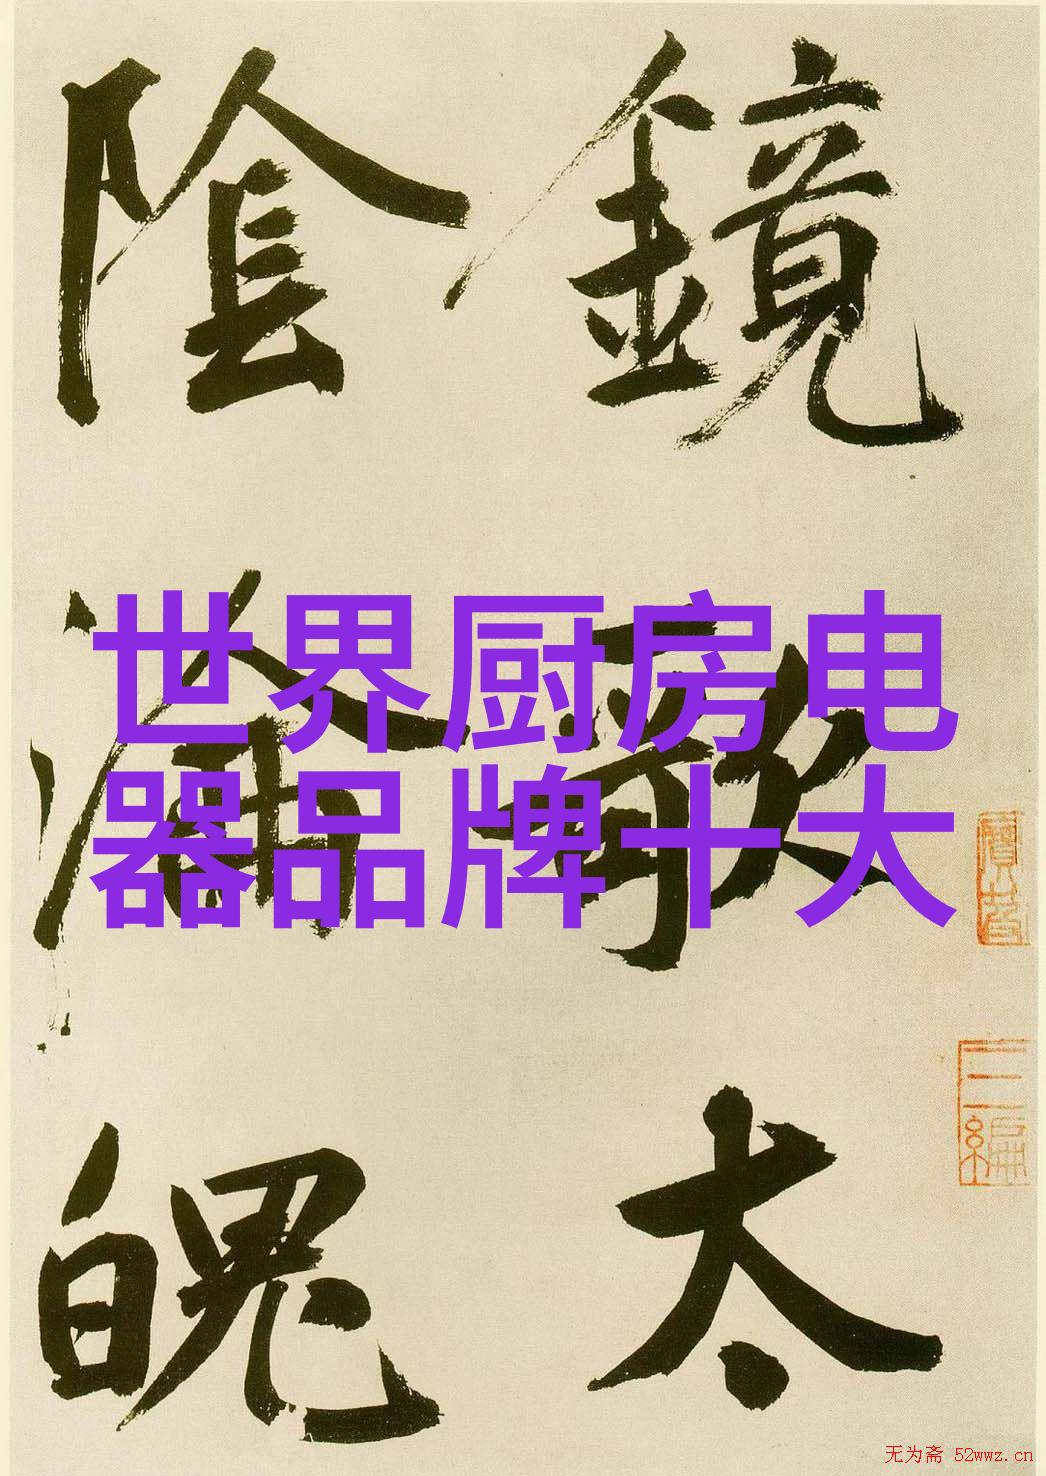 鏡
太
陰
淪
魄
世界厨房电
器品牌十大
无为斋 52wwz.cn